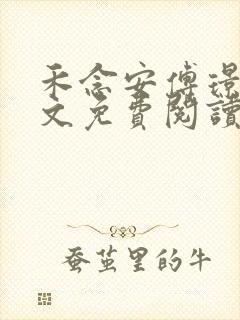 禾念安傅璟
文免費閱讀
蚕茧里的牛